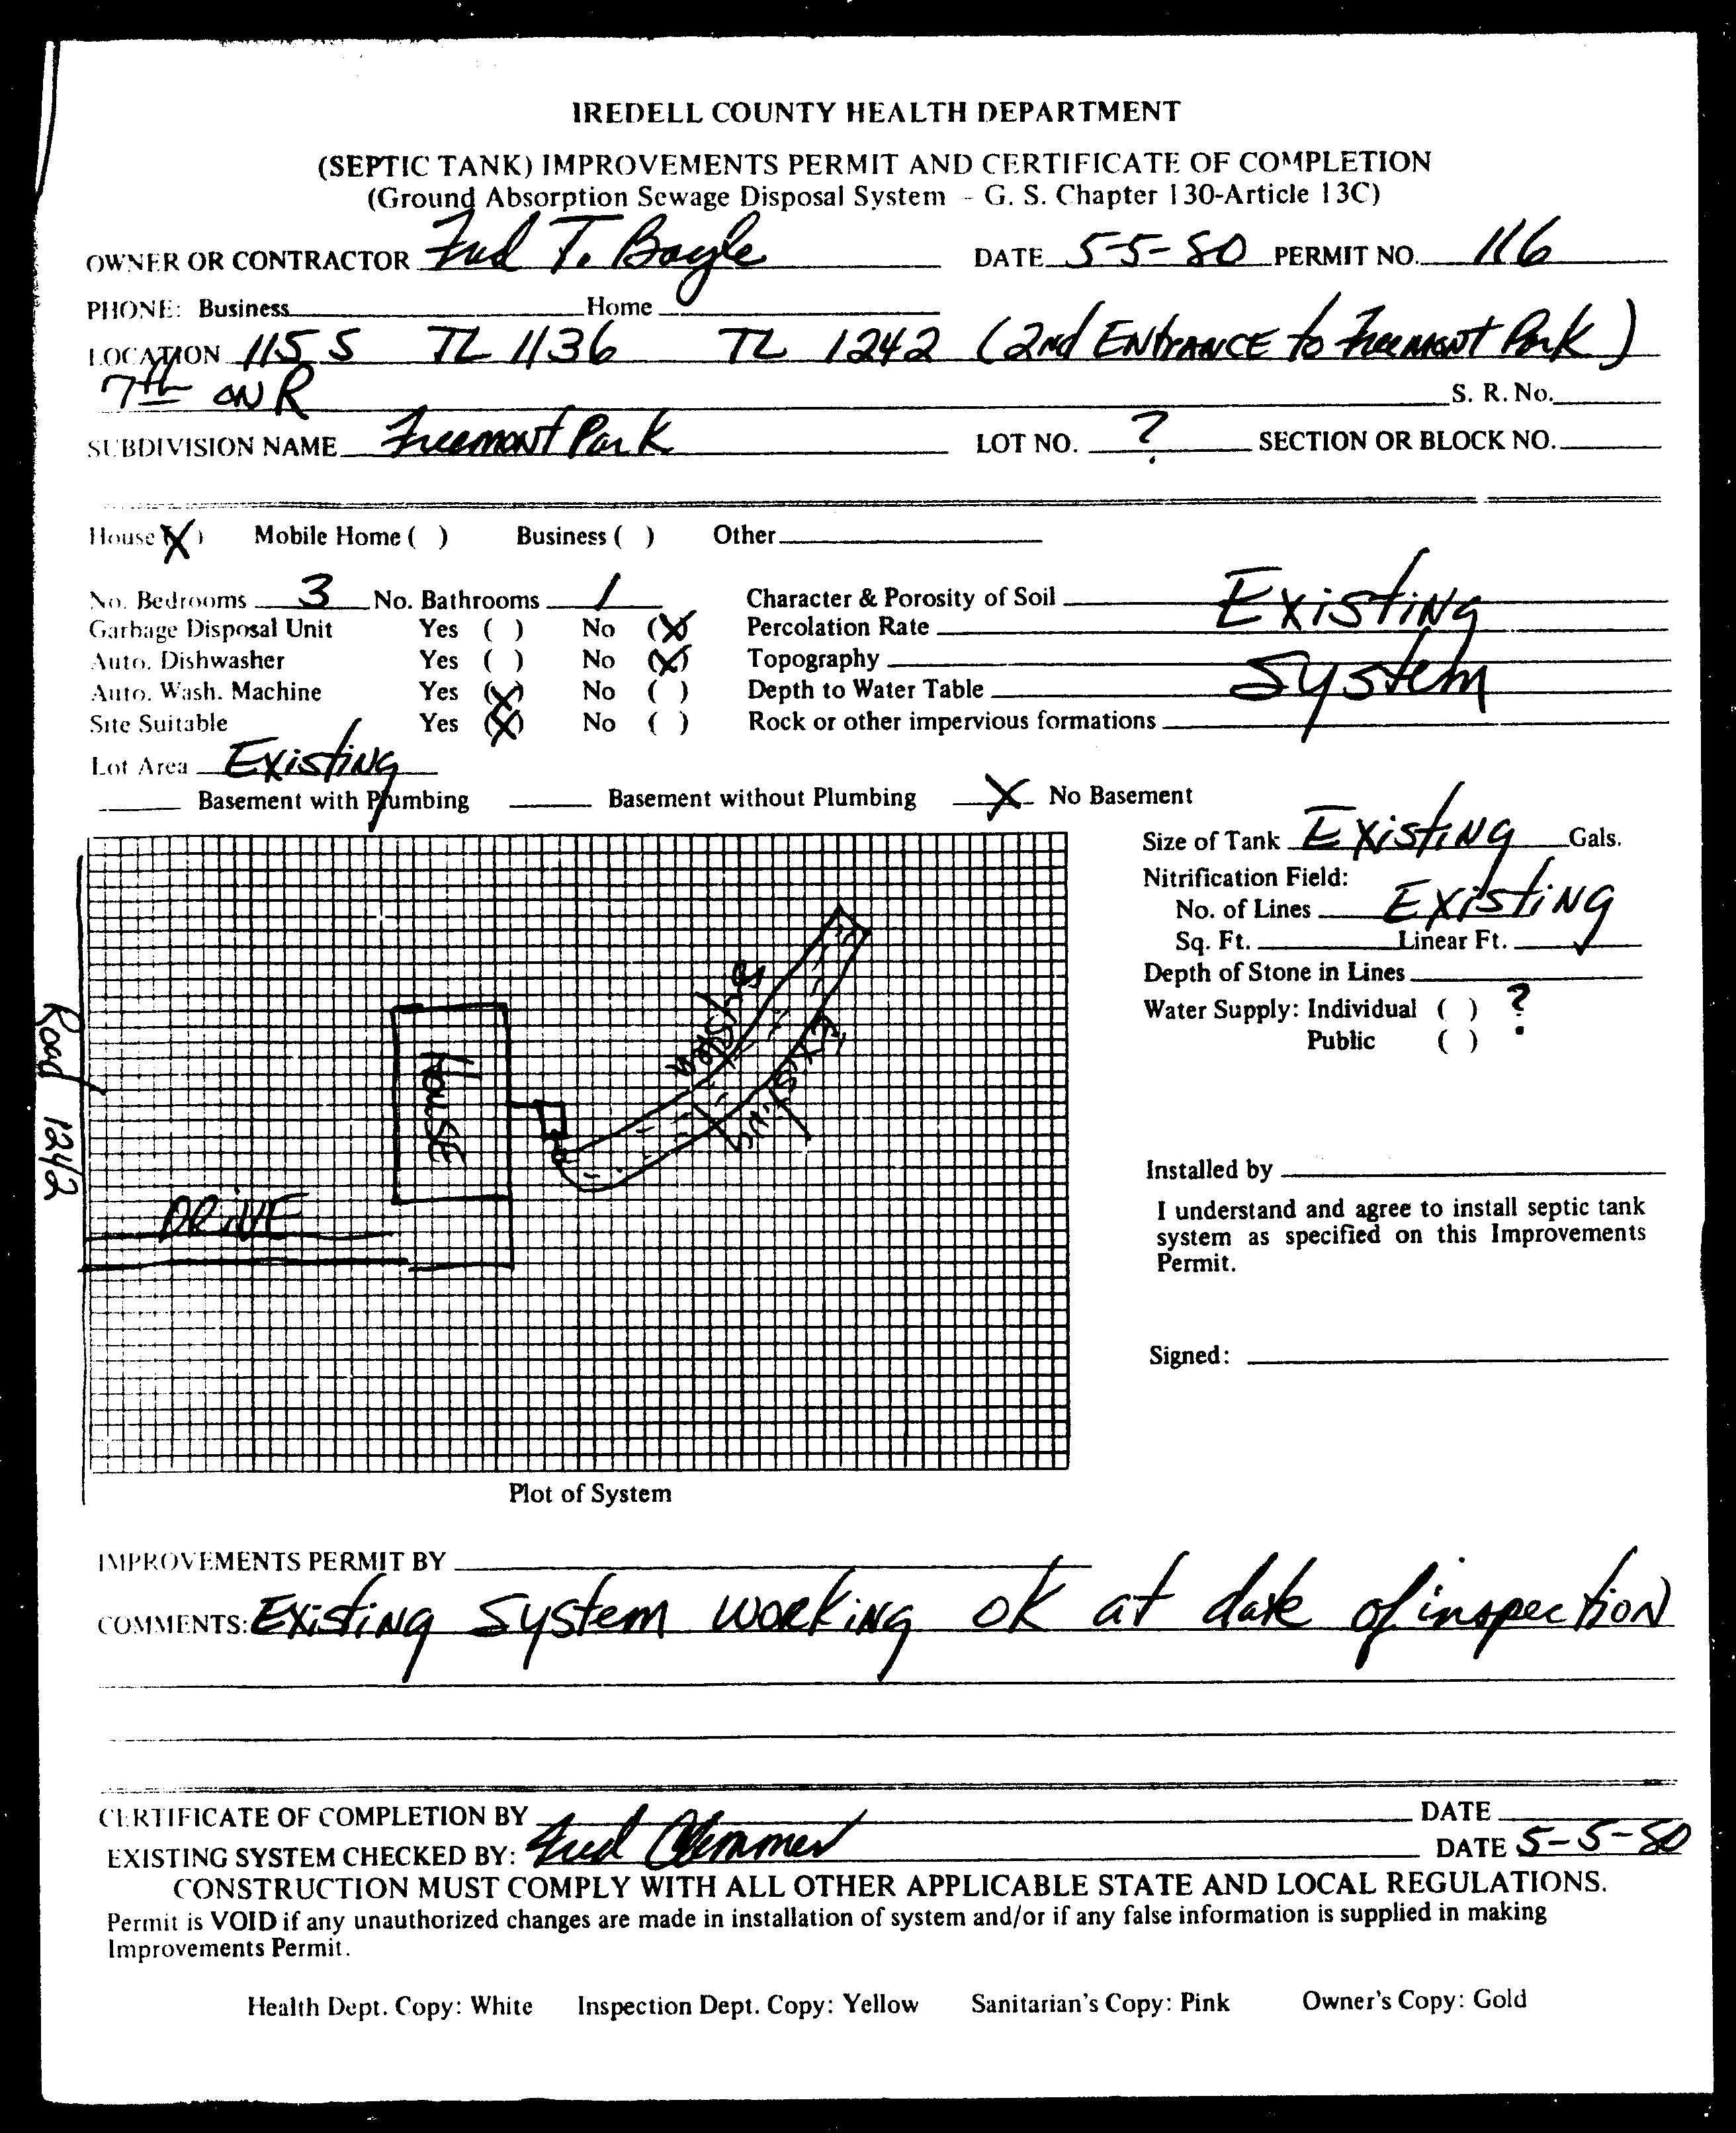 IREDELL COUNTY HEALTH DEPARTMENT
(SEPTIC TANK) IMPROVEMENTS PERMIT AND CERTIFICATE OF COMPLETION
(Ground Absorption Sewage Disposal System - G. S. Chapter 130-Article 13C)
OWNER OR CONTRACTOR Fred T. Bogle DATE 5-5-80 PERMIT NO. 116
PHONE: Business Home
LOCATION 115 S TL 1136 TL 1242 (2nd ENtrANCE to Freemont Park)
7th ON R S. R. No.
SUBDIVISION NAME Freemont Park LOT NO. ? SECTION OR BLOCK NO.
House (X) Mobile Home ( ) Business ( ) Other
No. Bedrooms 3 No. Bathrooms 1 Character & Porosity of Soil Existing
Garbage Disposal Unit Yes ( ) No (X) Percolation Rate
Auto. Dishwasher Yes ( ) No (X) Topography System
Auto. Wash. Machine Yes (X) No ( ) Depth to Water Table
Site Suitable Yes (X) No ( ) Rock or other impervious formations
Lot Area Existing
Basement with Plumbing Basement without Plumbing X No Basement
Size of Tank Existing Gals.
Nitrification Field:
No. of Lines Existing
Sq. Ft. Linear Ft.
Depth of Stone in Lines
Water Supply: Individual ( ) ?
Public ( )
Road 1242
House
DRIVE
Existing
System
Installed by
I understand and agree to install septic tank
system as specified on this Improvements
Permit.
Signed:
Plot of System
IMPROVEMENTS PERMIT BY
COMMENTS: Existing System working ok at date of inspection
CERTIFICATE OF COMPLETION BY DATE
EXISTING SYSTEM CHECKED BY: Fred Clemmer DATE 5-5-80
CONSTRUCTION MUST COMPLY WITH ALL OTHER APPLICABLE STATE AND LOCAL REGULATIONS.
Permit is VOID if any unauthorized changes are made in installation of system and/or if any false information is supplied in making
Improvements Permit.
Health Dept. Copy: White Inspection Dept. Copy: Yellow Sanitarian's Copy: Pink Owner's Copy: Gold